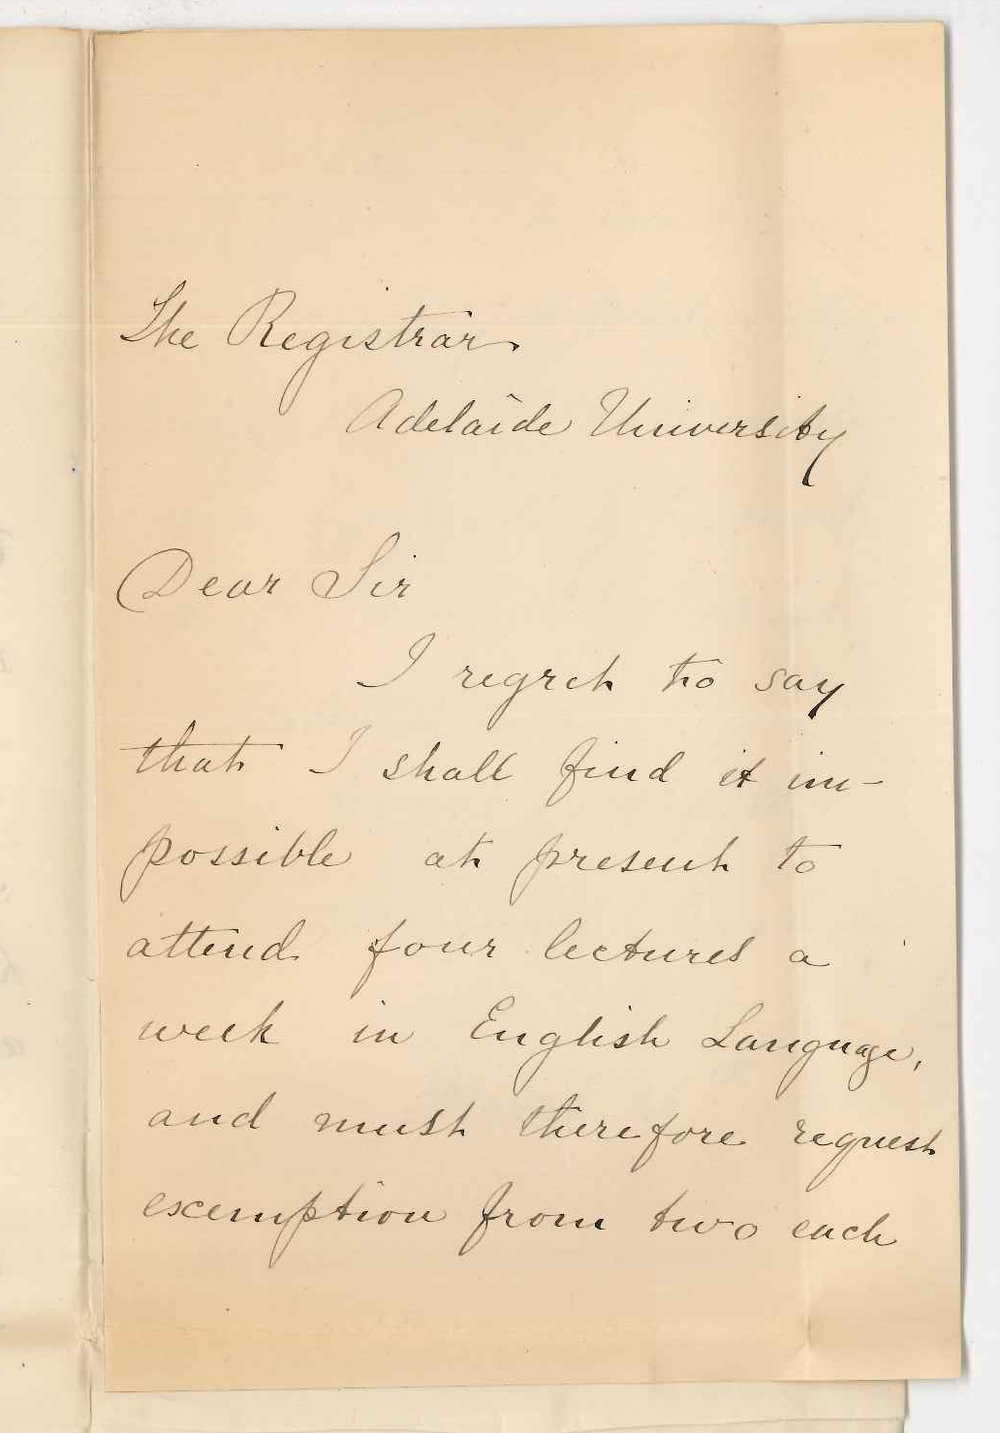 The Registrar
Adelaide University
Dear Sir
I regret to say
that I shall find it im-
possible at present to
attend four lectures a
week in English Language,
and must therefore request
exemption from two each